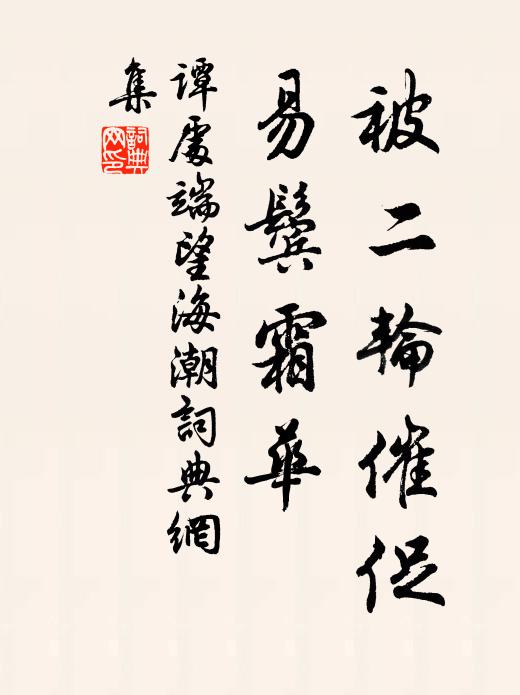 被二輪催促
易鬢霜華
譚處端望海潮詞典網
集
詞典網印